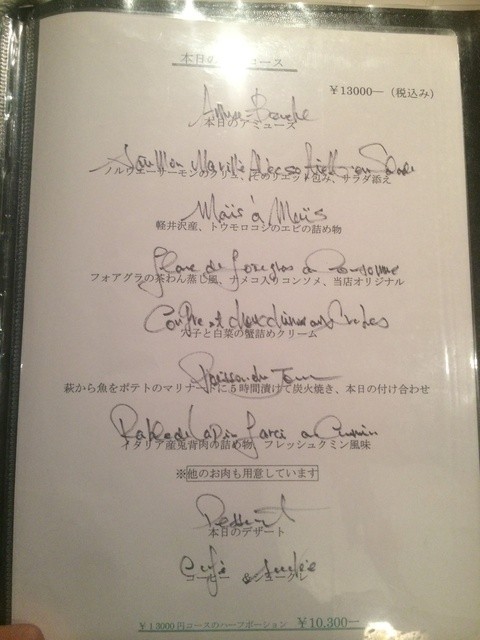 本日の コース
¥13000―（税込み）
Amuse Bouche
本日のアミューズ
ノルウェーサーモンのマリネ、そのリエット包み、サラダ添え
Maïs à Maïs
軽井沢産、トウモロコシのエビの詰め物
フォアグラの茶わん蒸し風、ナメコ入りコンソメ、当店オリジナル
穴子と白菜の蟹詰めクリーム
Poisson du Jour
萩から魚をポテトのマリナードに5時間漬けて炭火焼き、本日の付け合わせ
Rable de Lapin farci au Cumin
イタリア産兎背肉の詰め物、フレッシュクミン風味
※他のお肉も用意しています
Dessert
本日のデザート
Café
コーヒー
¥13000円コースのハーフポーション ¥10,300―